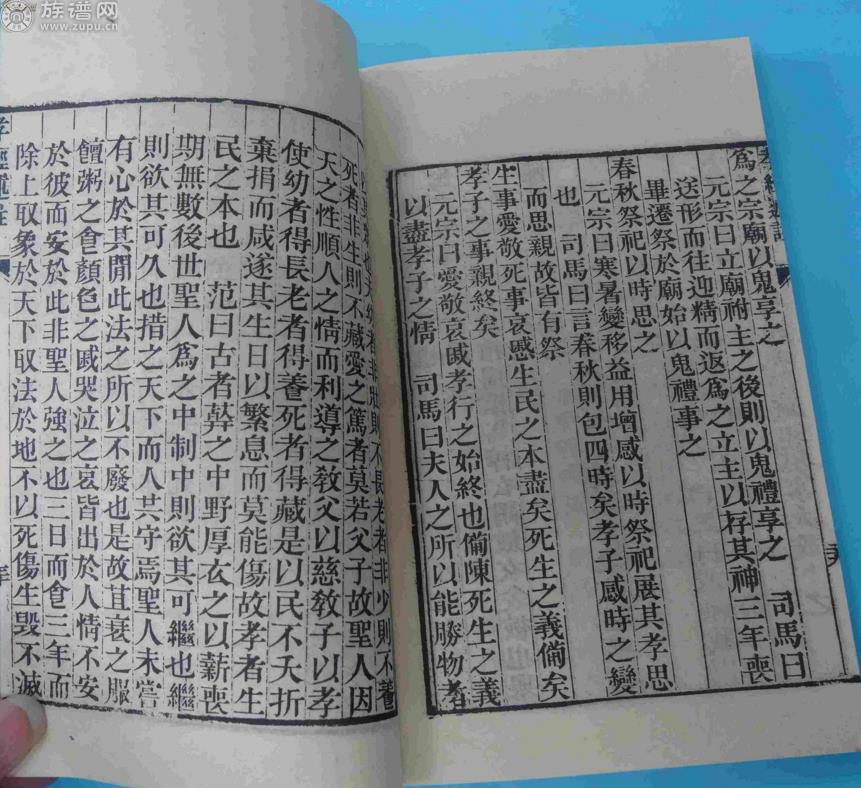 族谱网
www.zupu.cn
為之宗廟以鬼享之
元宗曰立廟祔主之後則以鬼禮享之 司馬曰
送形而往迎精而返為之立主以存其神三年喪
畢遷祭於廟始以鬼禮事之
春秋祭祀以時思之
元宗曰寒暑變移益用增感以時祭祀展其孝思
也 司馬曰言春秋則包四時矣孝子感時之變
而思親故皆有祭
生事愛敬死事哀慼生民之本盡矣死生之義備矣
孝子之事親終矣
元宗曰愛敬哀戚孝行之始終也備陳死生之義
以盡孝子之情 司馬曰夫人之所以能勝物者
非壯則不長老者非少則不養
死者非生則不藏愛之篤者莫若父子故聖人因
天之性順人之情而利導之敎父以慈敎子以孝
使幼者得長老者得養死者得藏是以民不夭折
棄捐而咸遂其生日以繁息而莫能傷故孝者生
民之本也 范曰古者葬之中野厚衣之以薪喪
期無數後世聖人為之中制中則欲其可繼也繼
則欲其可久也措之天下而人共守焉聖人未嘗
有心於其閒此法之所以不廢也是故苴衰之服
饘粥之食顏色之戚哭泣之哀皆出於人情不安
於彼而安於此非聖人強之也三日而食三年而
除上取象於天下取法於地不以死傷生毀不滅
孝經述註